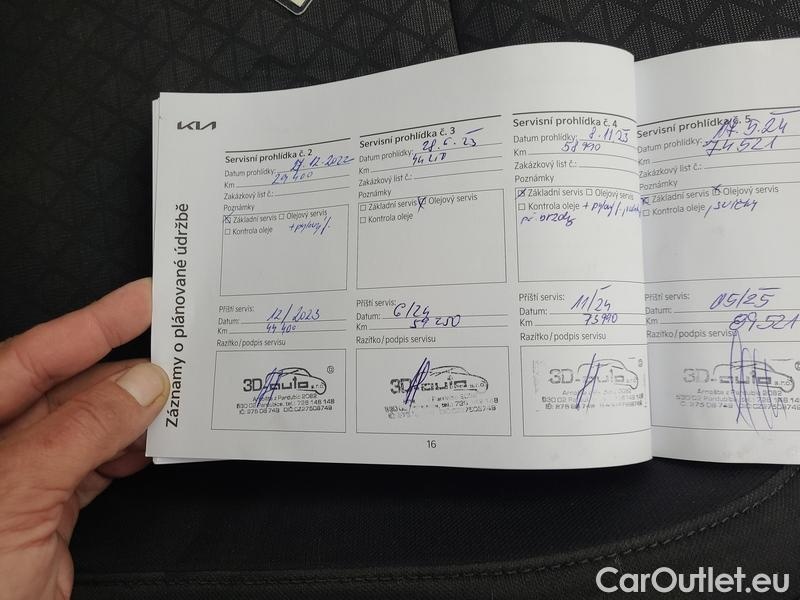 KIA
Záznamy o plánované údržbě
Servisní prohlídka č. 2
Datum prohlídky: 17.12.2022
Km 29 400
Zakázkový list č.:
Poznámky
Základní servis Olejový servis
Kontrola oleje + pylový f.
Příští servis:
Datum: 12/2023
Km 44 400
Razítko/podpis servisu
3D-auto s.r.o.
Arnošta z Pardubic 2082
530 02 Pardubice, tel.: 728 148 148
IČ: 275 08 749 DIČ: CZ27508749
Servisní prohlídka č. 3
Datum prohlídky: 28.6.23
Km 44 210
Zakázkový list č.:
Poznámky
Základní servis Olejový servis
Kontrola oleje
Příští servis:
Datum: 6/24
Km 59 250
Razítko/podpis servisu
3D-auto s.r.o.
Servisní prohlídka č. 4
Datum prohlídky: 8.11.23
Km 58 990
Zakázkový list č.:
Poznámky
Základní servis Olejový servis
Kontrola oleje + pylový f.,
př. brzdy
Příští servis:
Datum: 11/24
Km 73990
Razítko/podpis servisu
3D-auto s.r.o.
Servisní prohlídka č. 5
Datum prohlídky: 17.9.24
Km 74521
Zakázkový list č.:
Poznámky
Základní servis Olejový servis
Kontrola oleje , svíčky
Příští servis:
Datum: 05/25
Km 89521
Razítko/podpis servisu
3D-auto s.r.o.
Arnošta z Pardubic 2082
530 02 Pardubice, tel.: 728 148 148
IČ: 275 08 749 DIČ: CZ27508749
16
CarOutlet.eu